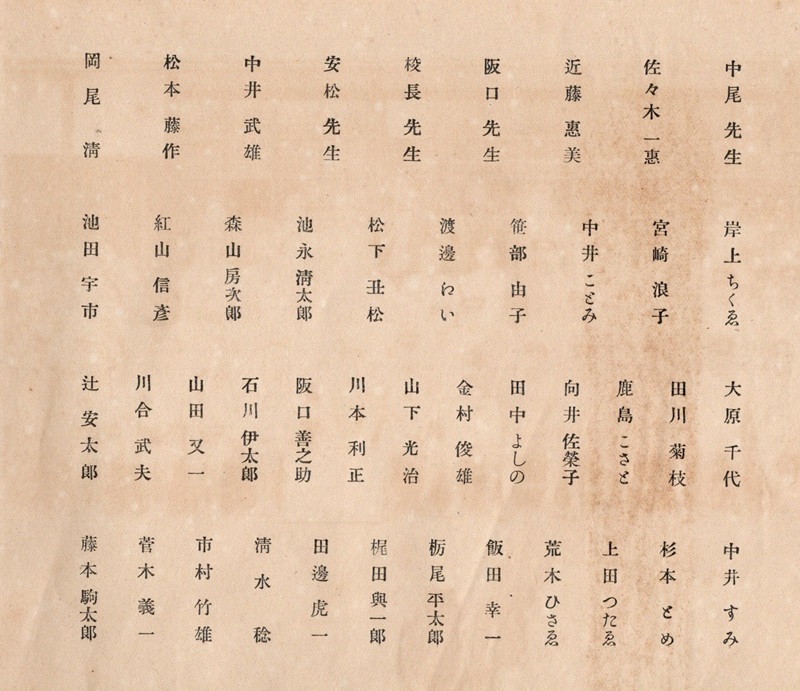 中尾先生
佐々木一惠
近藤惠美
阪口先生
校長先生
安松先生
中井武雄
松本藤作
岡尾淸
岸上ちくゑ
宮崎浪子
中井ことみ
笹部由子
渡邊わい
松下丑松
池永淸太郎
森山房次郎
紅山信彥
池田宇市
大原千代
田川菊枝
鹿島こさと
向井佐榮子
田中よしの
金村俊雄
山下光治
川本利正
阪口善之助
石川伊太郎
山田又一
川合武夫
辻安太郎
中井すみ
杉本とめ
上田つたゑ
荒木ひさゑ
飯田幸一
栃尾平太郎
梶田與一郎
田邊虎一
淸水稔
市村竹雄
菅木義一
藤本駒太郎